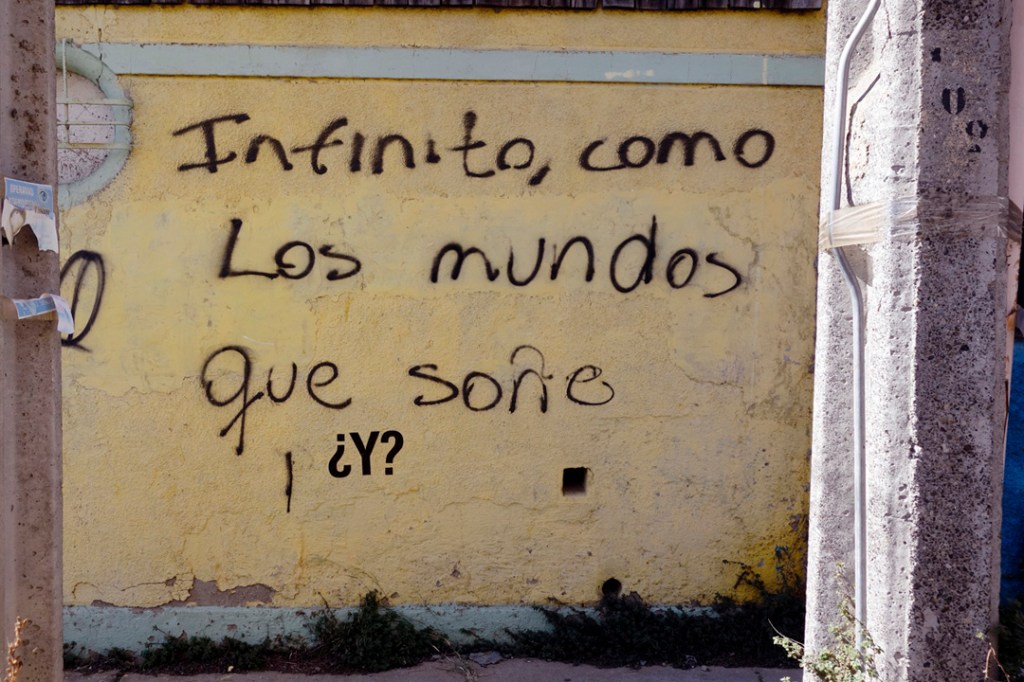 Infinito, como
Los mundos
que soñe
¿Y?